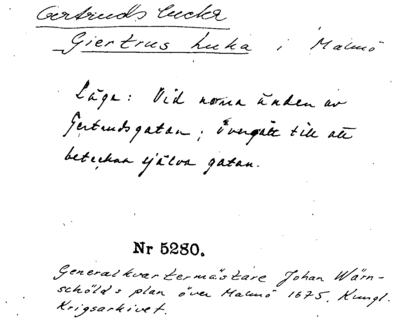 Gertruds lucka
Giertrus Luka i Malmö
Läge: Vid norra änden av
Gertrudsgatan; övergått till att
beteckna själva gatan.
Nr 5280.
Generalkvartermästare Johan Wärn-
schölds plan över Malmö 1675. Kungl.
Krigsarkivet.